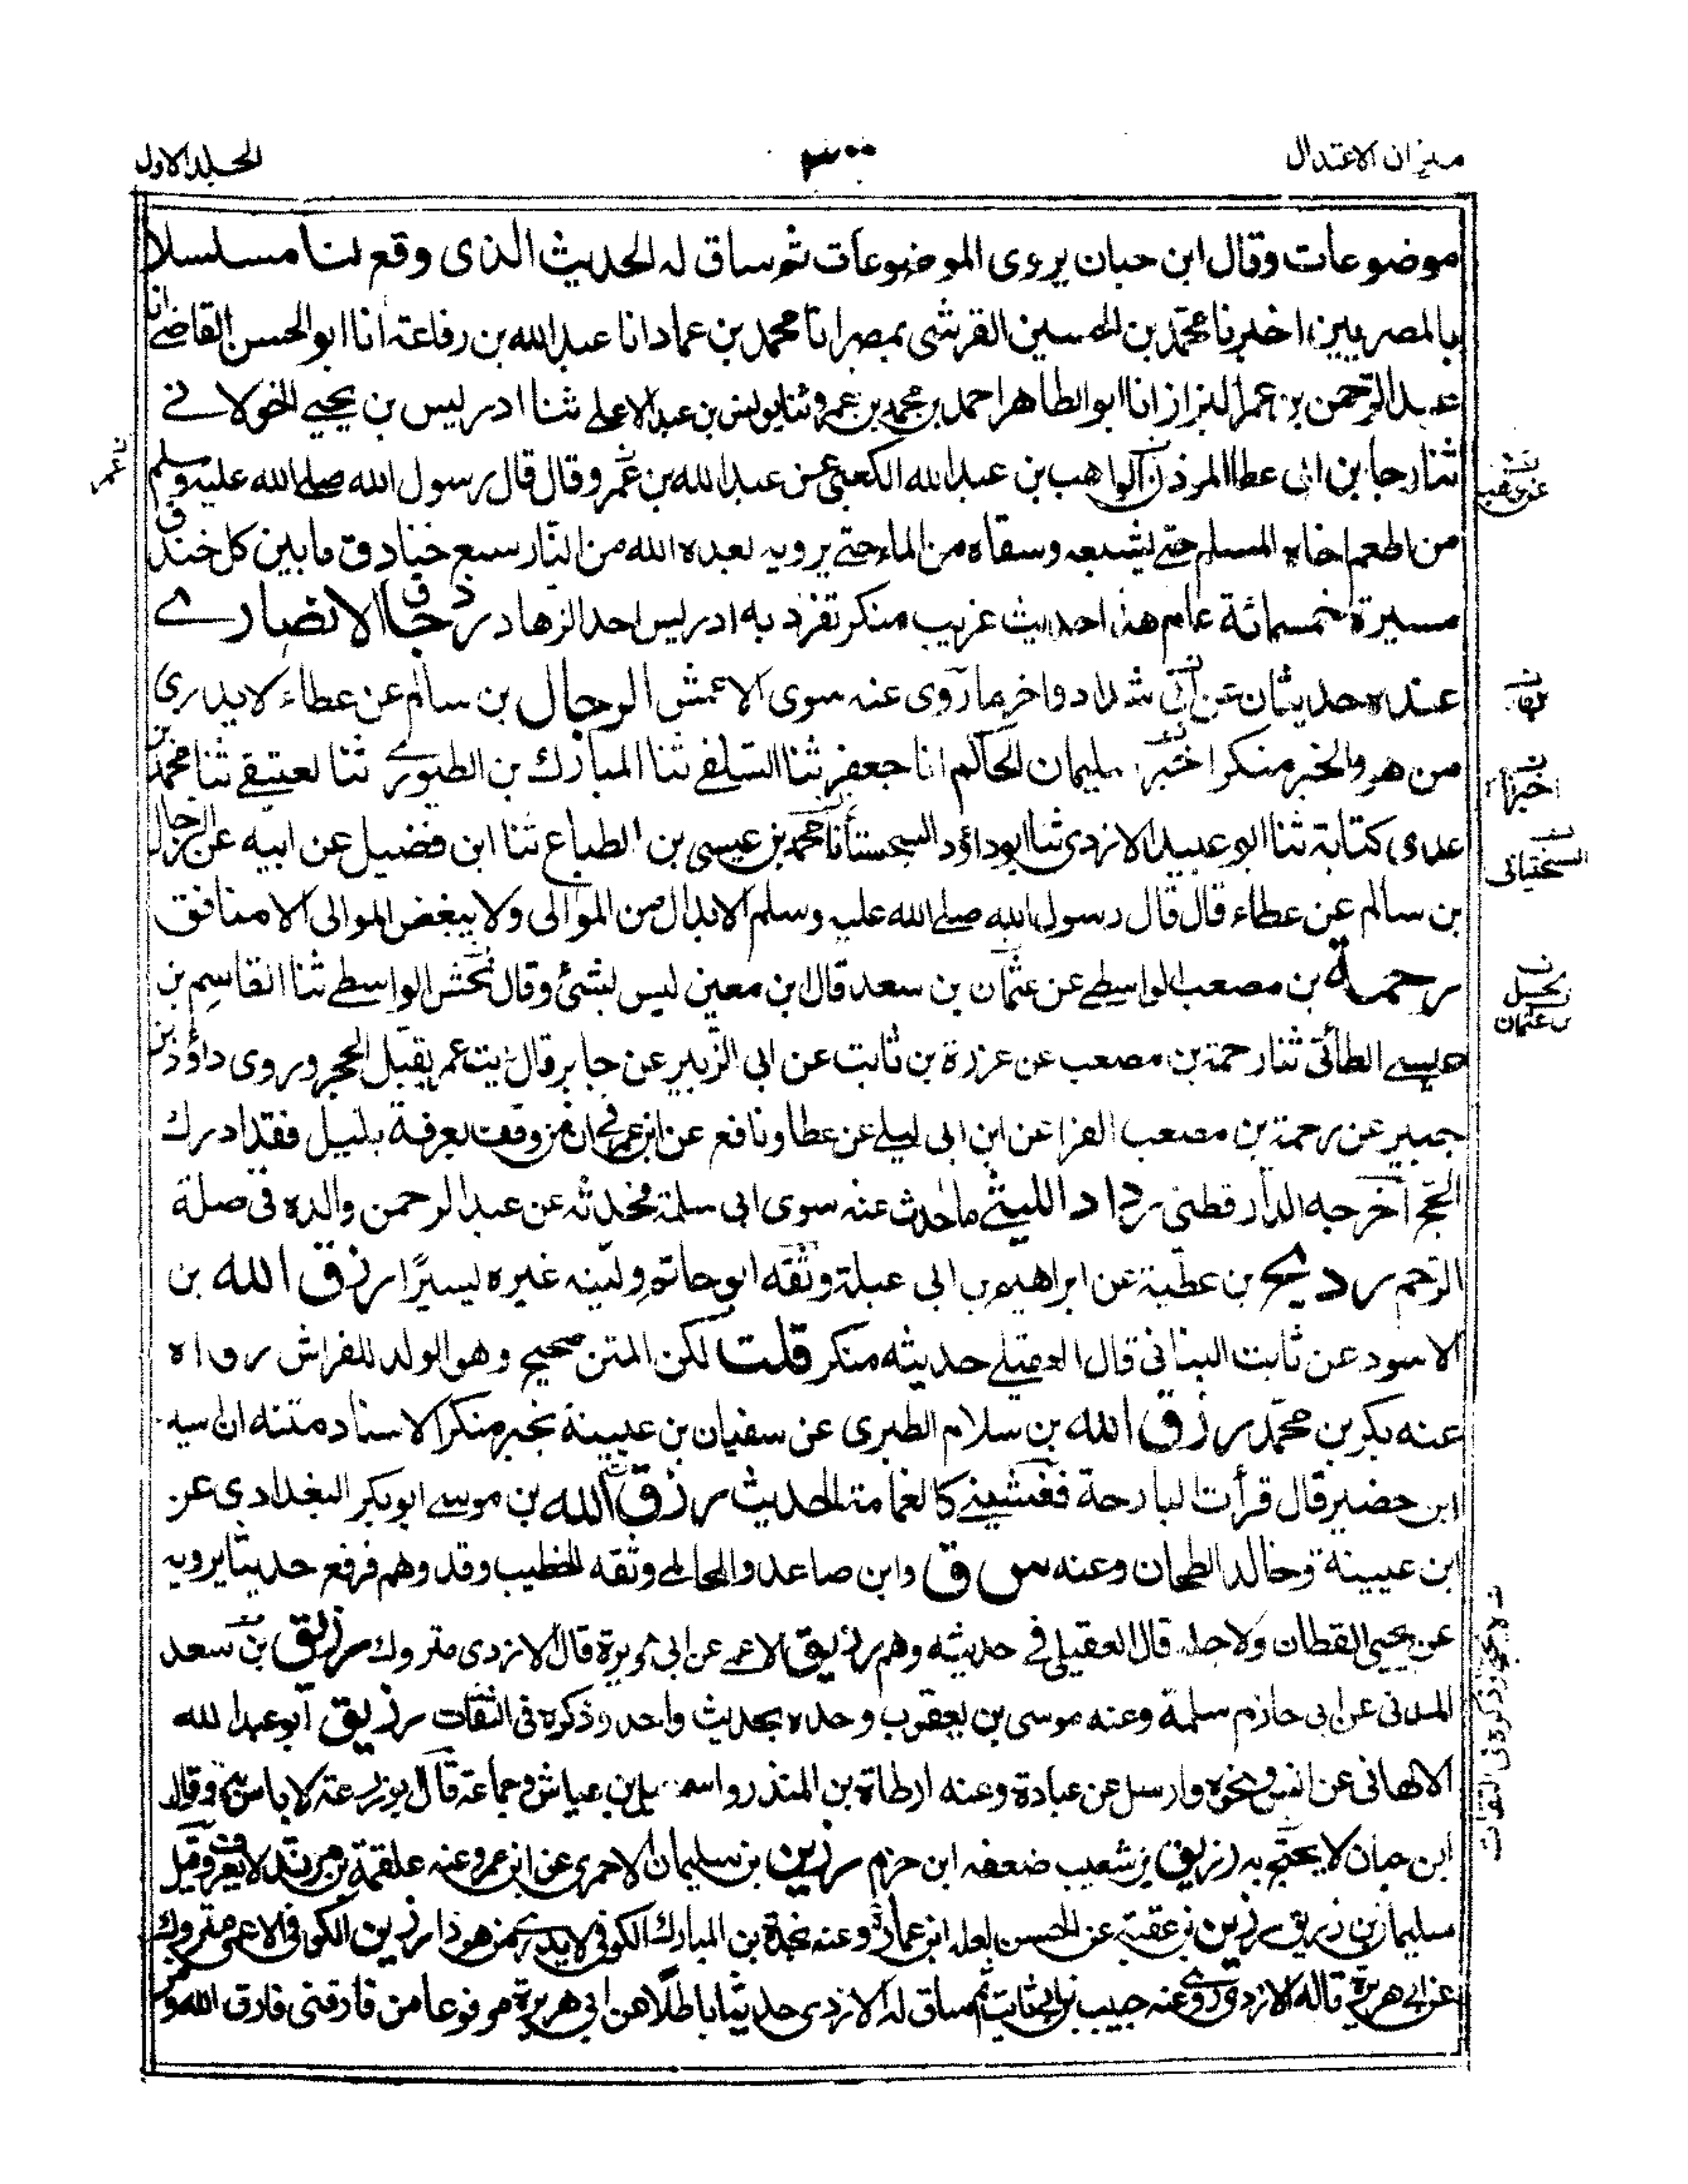 ميزان الاعتدال
٣٠٠
الجلد الاول
موضوعات وقال ابن حبان يروى الموضوعات ثم ساق له الحديث الذى وقع لنا مسلسلا
بالمصريين اخبرنا محمد بن الحسين القرشى بمصر انا محمد بن عماد انا عبد الله بن رفاعة انا ابو الحسن القاضى انا
عبد الرحمن بن عمر البزار انا ابو الطاهر احمد بن محمد بن عمرو ثنا يونس بن عبد الاعلى ثنا ادريس بن يحيى الخولانے
ثنا رجا بن ابى عطا المؤذن الواهب بن عبد الله الكعبى عن عبد الله بن عمرو قال قال رسول الله صلے الله عليه وسلم
من اطعم اخاه المسلم حتے يشبعه وسقاه من الماء حتے يرويه بعده الله من النار سبع خنادق ما بين كل خندق
مسيرة خمسمائة عام هذا حديث غريب منكر تفرد به ادريس احد الزهاد رجا الانصارے
عنده حديثان عن شداد واخر ما روى عنه سوى الاعمش الرجال بن سالم عن عطاء لا يدرى
من هو والخبر منكر اخبر سليمان الحاكم انا جعفر ثنا السلفے ثنا المبارك بن الطيورے ثنا العتيقے ثنا محمد بن
عدى كتابة ثنا ابو عبيد الازدى ثنا ابو داؤد السجستانى محمد بن عيسى بن الطباع ثنا ابن فضيل عن ابيه عن الرجال
بن سالم عن عطاء قال قال رسول الله صلے الله عليه وسلم الابدال من الموالى ولا يبغض الموالى الا منافق
رحمة بن مصعب الواسطے عن عثمان بن سعد قال ابن معين ليس بشئ وقال بحشل الواسطے ثنا القاسم بن
عيسے الطائى ثنا رحمة بن مصعب عن عزرة بن ثابت عن ابى الزبير عن جابر قال رايت عمر يقبل الحجر وروى داؤد بن
جبير عن رحمة بن مصعب الفرا عن ابن ابى ليلے عن عطا ونافع عن ابن عمر من وقف بعرفة بليل فقد ادرك
الحج اخرجه الدارقطنى رداد الليثے ما حدث عنه سوى ابى سلمة فحديثه عن عبد الرحمن والده فى صلة
الرحم رديح بن عطية عن ابراهيم بن ابى عبلة وثقه ابو حاتم ولينه غيره يسيرًا رزق الله بن
الاسود عن ثابت البنانى قال العقيلے حديثه منكر قلت لكن المتن صحيح وهو الولد للفراش رواه
عنه بكر بن محمد رزق الله بن سلام الطبرى عن سفيان بن عيينة بخبر منكر الاسناد متنه ان اسيد
ابن حضير قال قرأت البارحة فغشينے كالغمامة الحديث رزق الله بن موسے ابو بكر البغدادى عن
ابن عيينة وخالد الطحان وعنه س ق وابن صاعد والمحاملے وثقه الخطيب وقد وهم فرفع حديثا يرويه
عن يحيى القطان ولاجله قال العقيلى فے حديثه وهم رزيق الاعمى عن ابى هريرة قال الازدى متروك رزيق بن سعد
المدنى عن ابى حازم سلمة وعنه موسى بن يعقوب وحده بحديث واحد وذكره فى الثقات رزيق ابو عبد الله
الالهانى عن انس ونحوه وارسل عن عبادة وعنه ارطاة بن المنذر واسمعيل بن عياش وجماعة قال ابو زرعة لا باس به وقال
ابن حبان لا يحتج به رزيق بن شعيب ضعفه ابن حزم رزين بن سليمان الاحمرى عن ابن عمر وعنه علقمة بن مرثد لا يعرف وقيل
سليمان بن رزين رزين بن عقبة عن الحسن لعله ابن عمارة وعنه نجدة بن المبارك الكوفى لا يدرى من هو ذا رزين الكوفى الاعمى متروك
عن ابى هريرة قاله الازدى وروى عنه حبيب بن ابى ثابت ثم ساق له الازدى حديثا باطلًا عن ابى هريرة مرفوعا من فارقنى فارق الله
اخبرنا
السختيانى
بحشل
بن عثمان